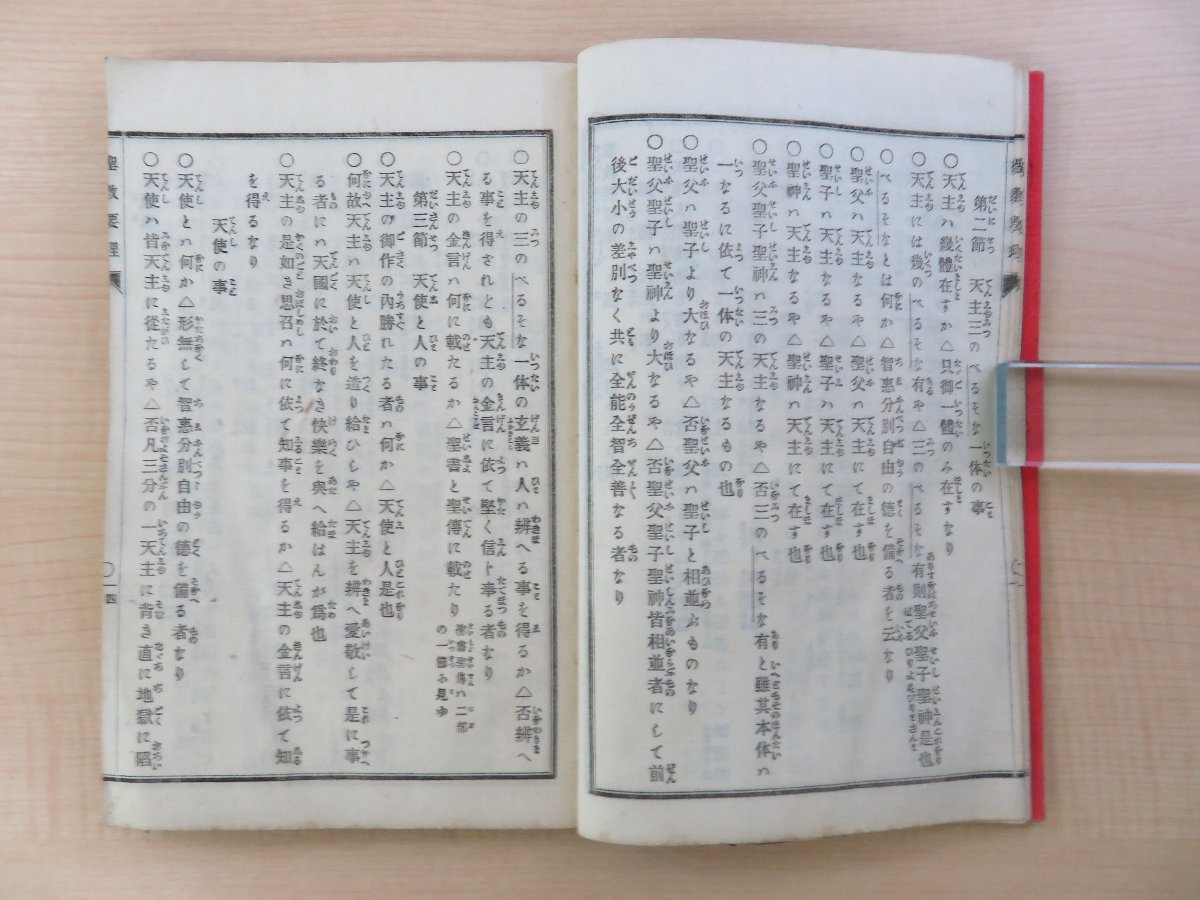 第二節　天主三のべるそな一体の事
〇天主ハ幾體在すか△只御一體のみ在すなり
〇天主には幾のべるそな有や△三のべるそな有則聖父聖子聖神是也
〇べるそなとは何か△智惠分別自由の德を備る者を云なり
〇聖父ハ天主なるや△聖父ハ天主にて在す也
〇聖子ハ天主なるや△聖子ハ天主にて在す也
〇聖神ハ天主なるや△聖神ハ天主にて在す也
〇聖父聖子聖神ハ三の天主なるや△否三のべるそな有と雖其本体ハ
一なるに依て一体の天主なるもの也
〇聖父ハ聖子より大なるや△否聖父ハ聖子と相並ぶものなり
〇聖父聖子ハ聖神より大なるや△否聖父聖子聖神皆相並者にして前
後大小の差別なく共に全能全智全善なる者なり
〇天主の三のべるそな一体の玄義ハ人ハ辨へる事を得るか△否辨へ
る事を得されども天主の金言に依て堅く信ト奉る者なり
〇天主の金言ハ何に載たるか△聖書と聖傳に載たり 聖書聖傳ハ二部の一節に見ゆ
第三節　天使と人の事
〇天主の御作の内勝れたる者ハ何か△天使と人是也
〇何故天主ハ天使と人を造り給ひしや△天主を辨へ愛敬して是に事
る者にハ天國に於て終なき快樂を與へ給はんが爲也
〇天主の是如き思召ハ何に依て知事を得るか△天主の金言に依て知
を得るなり
天使の事
〇天使とハ何か△形無して智惠分別自由の德を備る者なり
〇天使ハ皆天主に從たるや△否凡三分の一天主に背き直に地獄に陷
聖教要理
〇一四